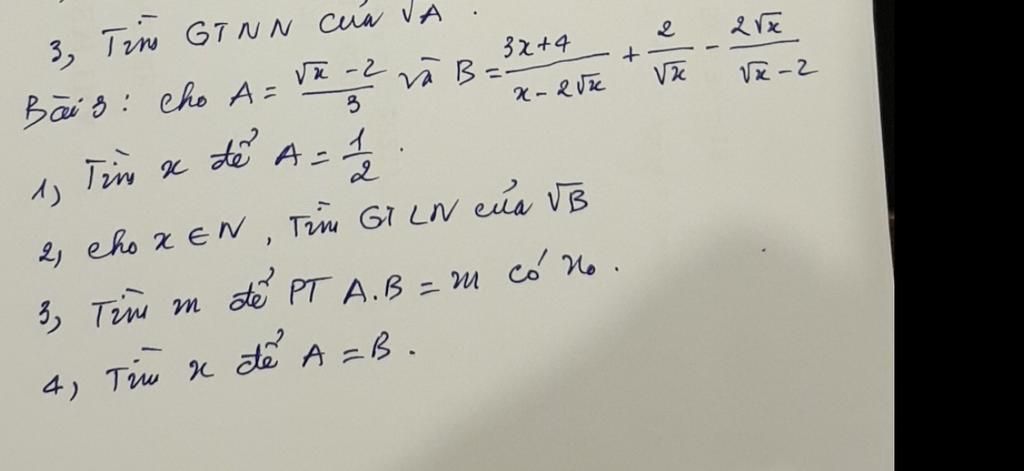 3, Tìm GTNN của √A.
Bài 3: cho A = (√x - 2)/3 và B = (3x+4)/(x - 2√x) + 2/√x - 2√x/(√x - 2)
1, Tìm x để A = 1/2.
2, cho x ∈ N, Tìm GTLN của √B
3, Tìm m để PT A.B = m có no.
4, Tìm x để A = B.